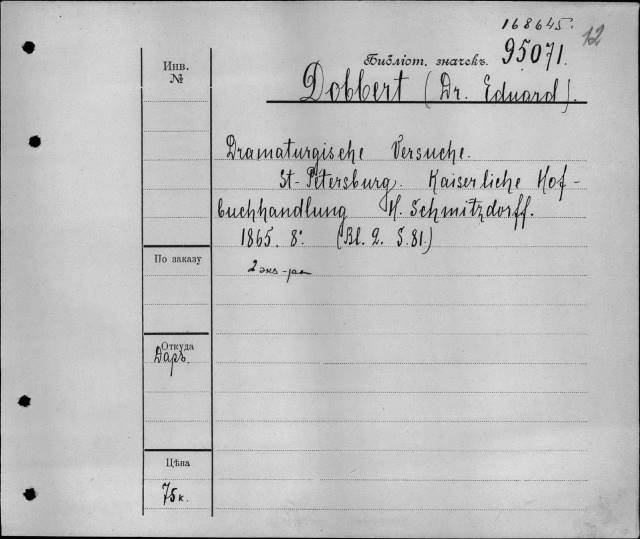 168645.
12
Библіот. значекъ. 95071.
Инв.
№
Dobbert (Dr. Eduard).
Dramaturgische Versuche.
St-Petersburg. Kaiserliche Hof-
buchhandlung H. Schmitzdorff.
1865. 8°. (Bl. 2. S. 81.)
По заказу
2 экз-ра
Откуда
Даръ.
Цѣна
75 к.